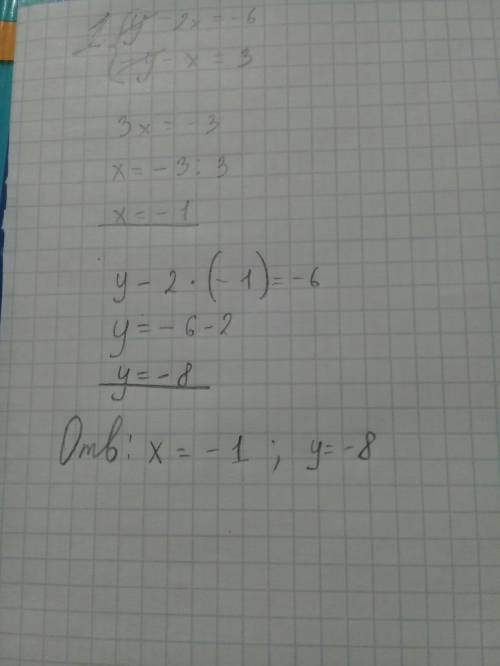 1. { y - 2x = -6
-y - x = 3
3x = -3
x = -3 : 3
x = -1
y - 2 · (-1) = -6
y = -6 - 2
y = -8
Отв: x = -1 ; y = -8